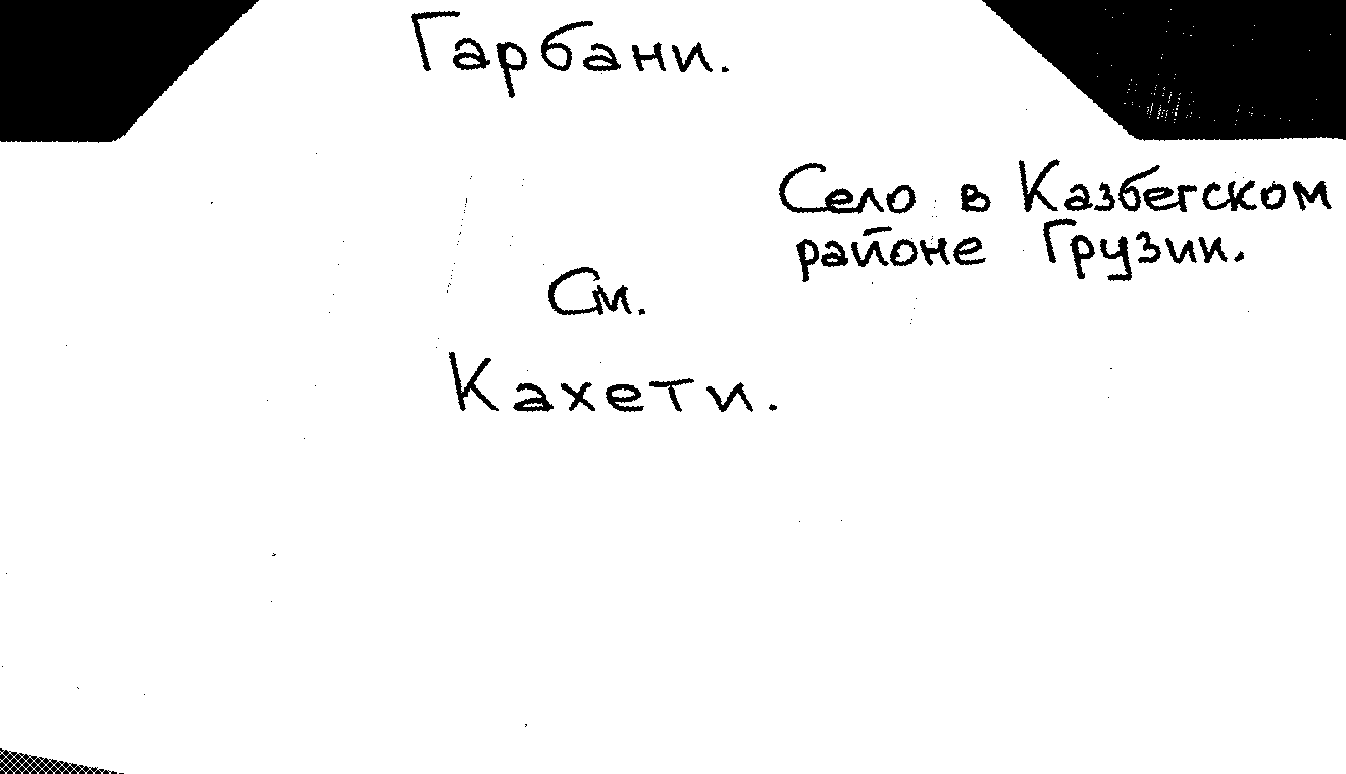 Гарбани.
Село в Казбегском
районе Грузии.
См.
Кахети.